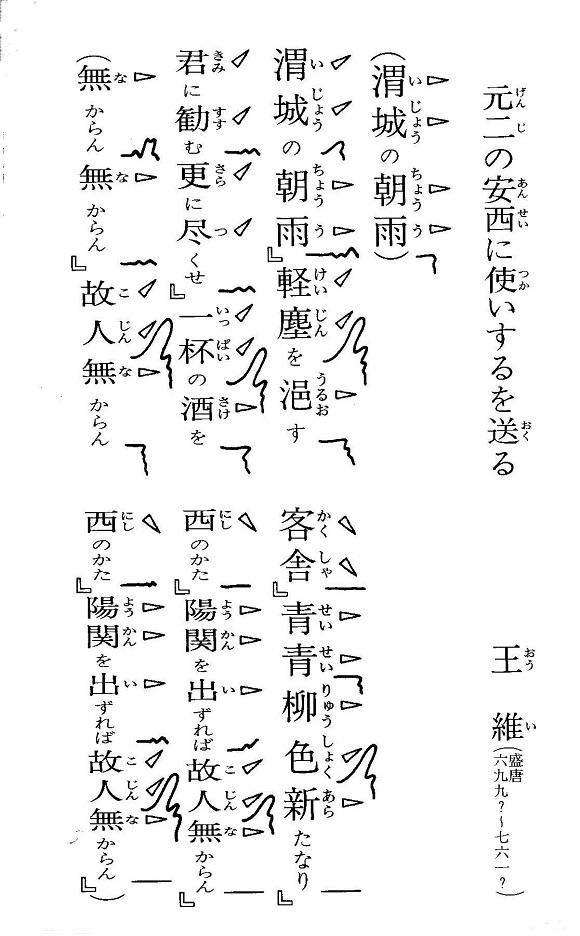 元二の安西に使いするを送る
王維（盛唐 六九九？〜七六一？）
（渭城の朝雨）
渭城の朝雨』軽塵を浥す
客舎』青青柳色新たなり』
君に勧む更に尽くせ』一杯の酒を
西のかた』陽関を出ずれば故人無からん』
（無からん無からん』故人無からん
西のかた』陽関を出ずれば故人無からん』）